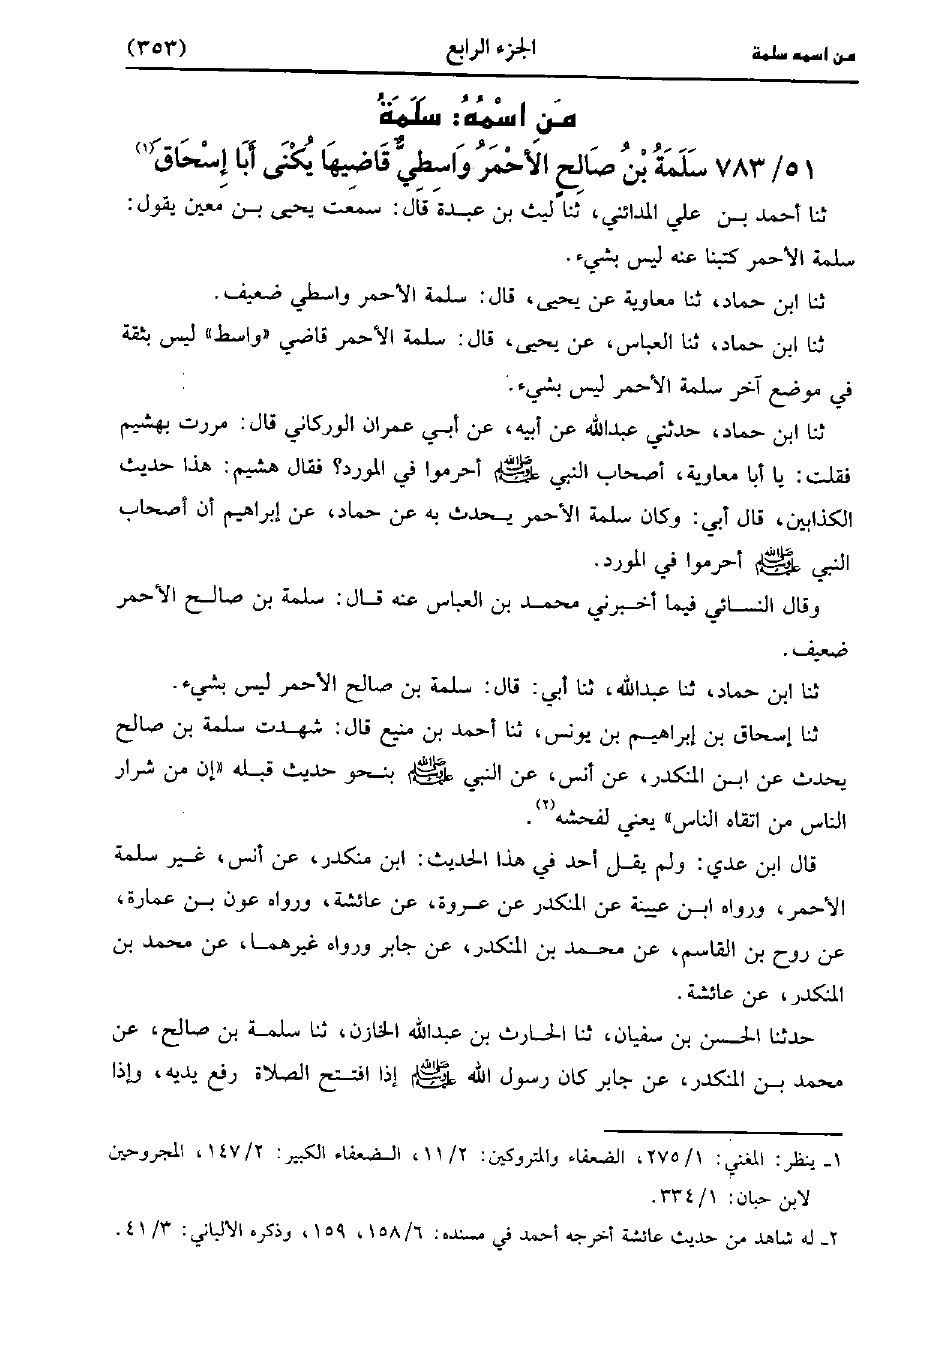 من اسمه سلمة الجزء الرابع (٣٥٣)
مَنِ اسْمُهُ: سَلَمَةُ
٧٨٣/٥١ سَلَمَةُ بْنُ صَالِحٍ الأَحْمَرُ وَاسِطِيٌّ قَاضِيهَا يُكْنَى أَبَا إِسْحَاقَ(١)
ثنا أحمد بن علي المدائني، ثنا ليث بن عبدة قال: سمعت يحيى بن معين يقول:
سلمة الأحمر كتبنا عنه ليس بشيء.
ثنا ابن حماد، ثنا معاوية عن يحيى، قال: سلمة الأحمر واسطي ضعيف.
ثنا ابن حماد، ثنا العباس، عن يحيى، قال: سلمة الأحمر قاضي «واسط» ليس بثقة
في موضع آخر سلمة الأحمر ليس بشيء.
ثنا ابن حماد، حدثني عبدالله عن أبيه، عن أبي عمران الوركاني قال: مررت بهشيم
فقلت: يا أبا معاوية، أصحاب النبي ﷺ أحرموا في المورد؟ فقال هشيم: هذا حديث
الكذابين، قال أبي: وكان سلمة الأحمر يحدث به عن حماد، عن إبراهيم أن أصحاب
النبي ﷺ أحرموا في المورد.
وقال النسائي فيما أخبرني محمد بن العباس عنه قال: سلمة بن صالح الأحمر
ضعيف.
ثنا ابن حماد، ثنا عبدالله، ثنا أبي: قال: سلمة بن صالح الأحمر ليس بشيء.
ثنا إسحاق بن إبراهيم بن يونس، ثنا أحمد بن منيع قال: شهدت سلمة بن صالح
يحدث عن ابن المنكدر، عن أنس، عن النبي ﷺ بنحو حديث قبله «إن من شرار
الناس من اتقاه الناس» يعني لفحشه(٢).
قال ابن عدي: ولم يقل أحد في هذا الحديث: ابن منكدر، عن أنس، غير سلمة
الأحمر، ورواه ابن عيينة عن المنكدر عن عروة، عن عائشة، ورواه عون بن عمارة،
عن روح بن القاسم، عن محمد بن المنكدر، عن جابر ورواه غيرهما، عن محمد بن
المنكدر، عن عائشة.
حدثنا الحسن بن سفيان، ثنا الحارث بن عبدالله الخازن، ثنا سلمة بن صالح، عن
محمد بن المنكدر، عن جابر كان رسول الله ﷺ إذا افتتح الصلاة رفع يديه، وإذا
١ـ ينظر: المغني: ٢٧٥/١، الضعفاء والمتروكين: ١١/٢، الضعفاء الكبير: ١٤٧/٢، المجروحين
لابن حبان: ٣٣٤/١.
٢ـ له شاهد من حديث عائشة أخرجه أحمد في مسنده: ١٥٨/٦، ١٥٩، وذكره الألباني: ٤١/٣.